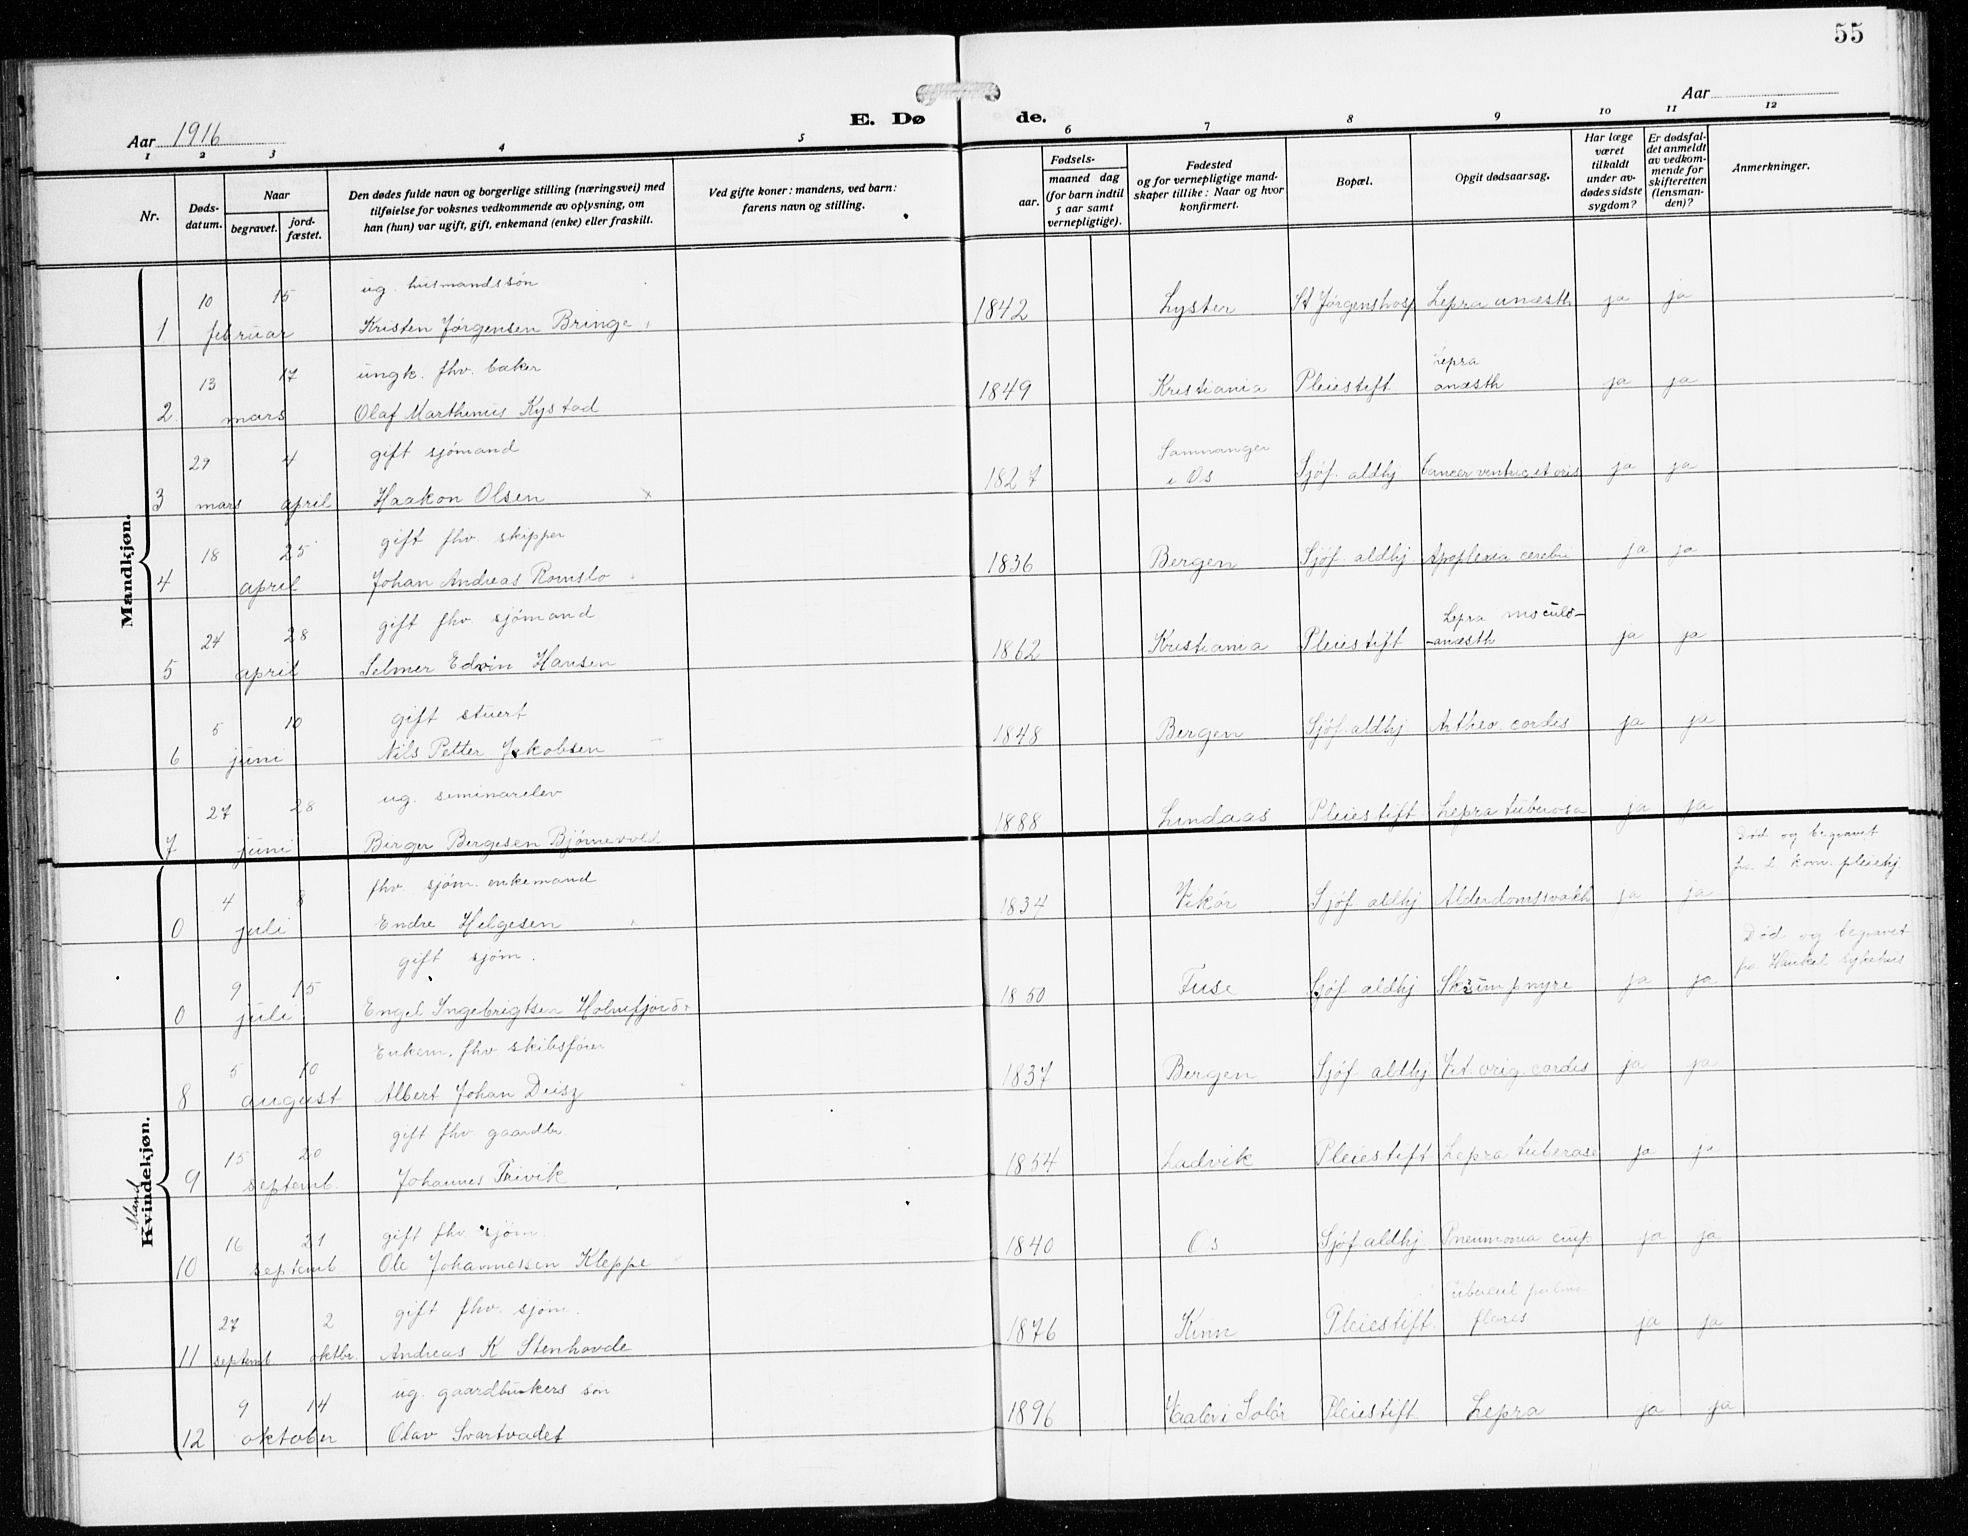 55
Aar 1916
E. Dø de.
Aar
1 2 3 4 5 6 7 8 9 10 11 12
Nr.
Døds-datum.
Naar
begravet.
jord-fæstet.
Den dødes fulde navn og borgerlige stilling (næringsvei) med
tilføielse for voksnes vedkommende av oplysning, om
han (hun) var ugift, gift, enkemand (enke) eller fraskilt.
Ved gifte koner: mandens, ved barn:
farens navn og stilling.
Fødsels-
aar.
maaned dag
(for barn indtil
5 aar samt
vernepligtige).
Fødested
og for vernepligtige mand-
skaper tillike: Naar og hvor
konfirmert.
Bopæl.
Opgit dødsaarsag.
Har læge
været
tilkaldt
under av-
dødes sidste
sygdom?
Er dødsfal-
det anmeldt
av vedkom-
mende for
skifteretten
(lensman-
den)?
Anmerkninger.
Mandkjøn.
10 15 ug. husmandssøn
1 februar Kristen Jørgensen Bringe 1842 Lyster St Jørgenshosp Lepra anæsth ja ja
13 17 ungk. fhv. baker Lepra
2 mars Olaf Marthinus Kystad 1849 Kristiania Pleiestift anæsth ja ja
29 4 gift sjømand Samnanger
3 mars april Haakon Olsen x 1827 i Os Sjøf. aldhj Cancer ventric. et oris ja ja
18 25 gift fhv. skipper
4 april Johan Andreas Romslo 1836 Bergen Sjøf. aldhj Apoplexia cerebri ja ja
24 28 gift fhv. sjømand Lepra maculo-
5 april Selmer Edvin Hansen 1862 Kristiania Pleiestift -anæsth ja ja
5 10 gift stuert
6 juni Nils Petter Jakobsen 1848 Bergen Sjøf. aldhj cordis ja ja
27 28 ug. seminarelev
7 juni Birger Bergesen Bjørnevold 1888 Lindaas Pleiestift Lepra tuberosa ja ja
Mand
Kvindekjøn.
4 8 fhv. sjøm. enkemand Død og begravet
0 juli Endre Helgesen 1834 Vikør Sjøf aldhj Alderdomssvakh ja ja kom. pleiehj.
9 15 gift sjøm. Død og begravet
0 juli Engel Ingebrigtsen Holmefjord 1850 Fuse Sjøf aldhj Skrumpnyre ja ja sykehus
5 10 Enkem. fhv. skibsfører
8 august Albert Johan Deisz 1837 Bergen Sjøf. aldhj orig. cordis ja ja
15 20 gift fhv. gaardbr
9 septemb. Johannes Trivik 1854 Ladvik Pleiestift Lepra tuberose ja ja
16 21 gift fhv. sjøm.
10 septemb Ole Johannessen Kleppe 1840 Os Sjøf aldhj. Pneumonia crup. ja ja
27 2 gift fhv. sjøm.
11 septemb oktbr. Andreas K Stenhovde 1876 Kinn Pleiestift. ja ja
9 14 ug. gaardbrukers søn
12 oktober Olav Svartvadet 1896 Vaaler i Solør Pleiestift Lepra ja ja